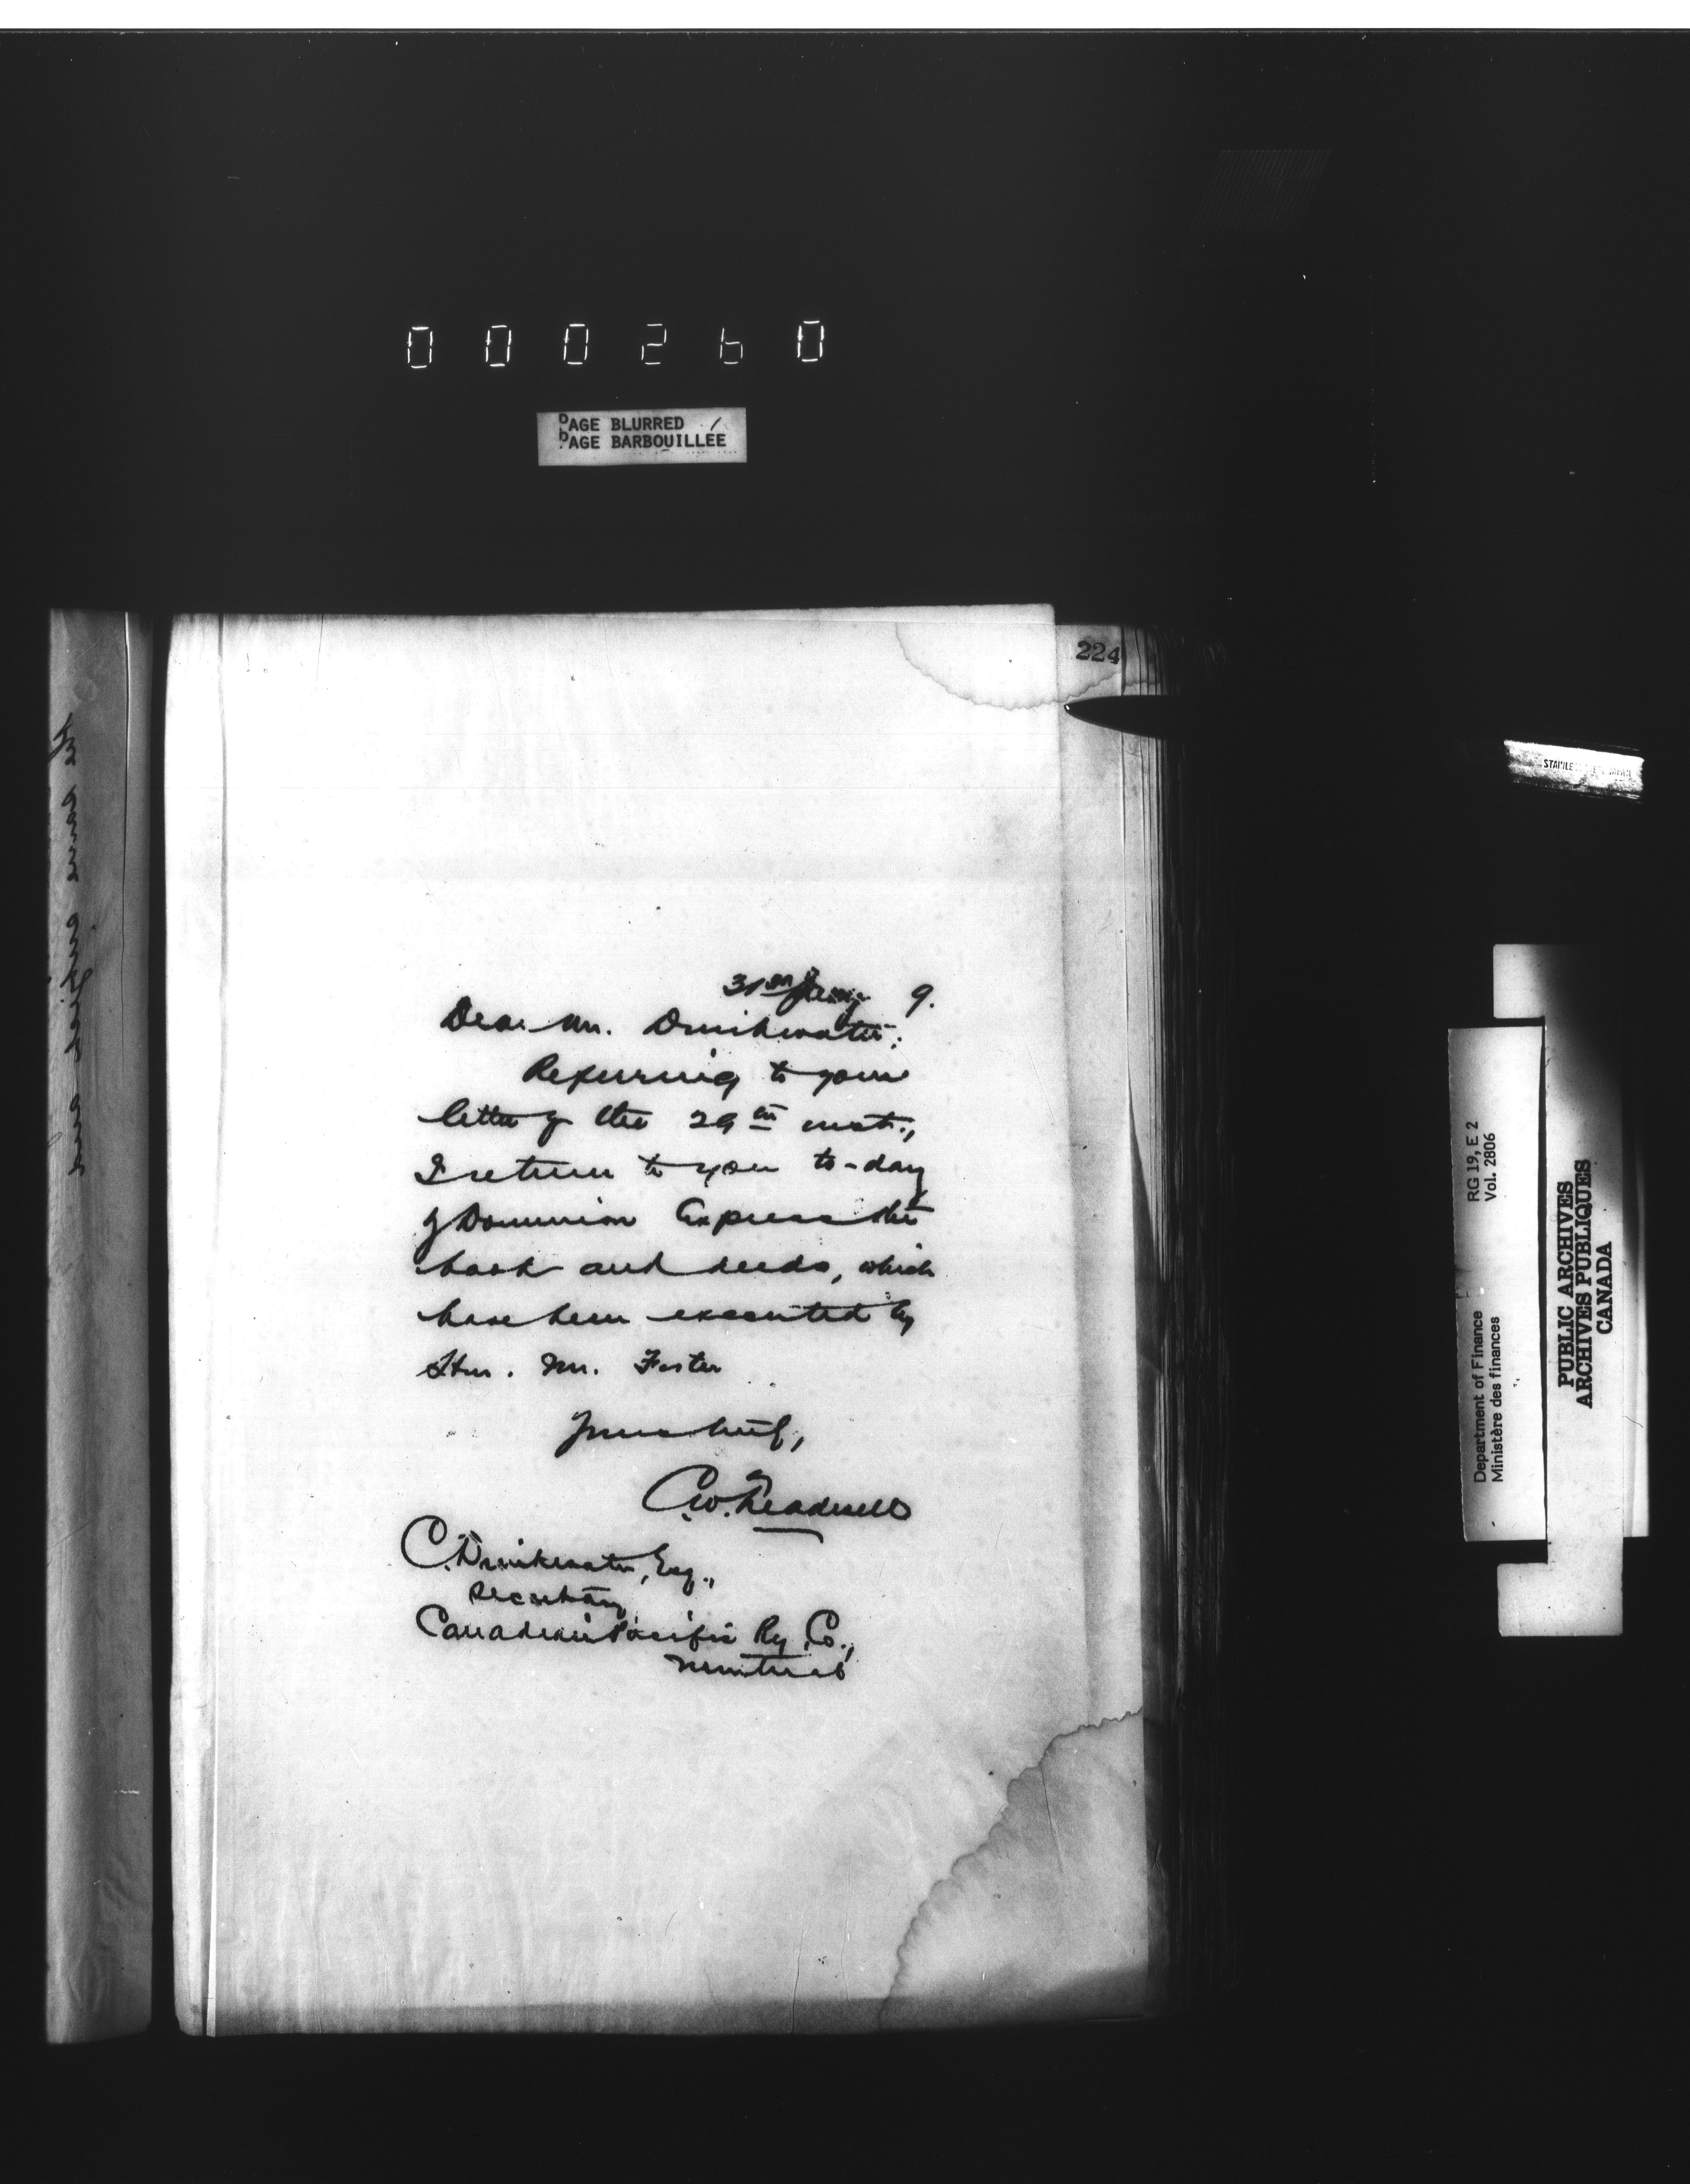 000260
PAGE BLURRED
PAGE BARBOUILLÉE
224
31st 9.
Dear Mr. Drinkwater:
Referring to your
letter of the 29th inst.,
I return to you to-day
by Dominion Express the
book and deeds, which
have been executed by
Hon. Mr. Foster
Yours truly,
C.W. Treadwell
C. Drinkwater, Esq.,
Secretary
Canadian Pacific Ry. Co.,
Montreal
the same
and
Department of Finance RG 19, E 2
Ministère des finances Vol. 2806
PUBLIC ARCHIVES
ARCHIVES PUBLIQUES
CANADA